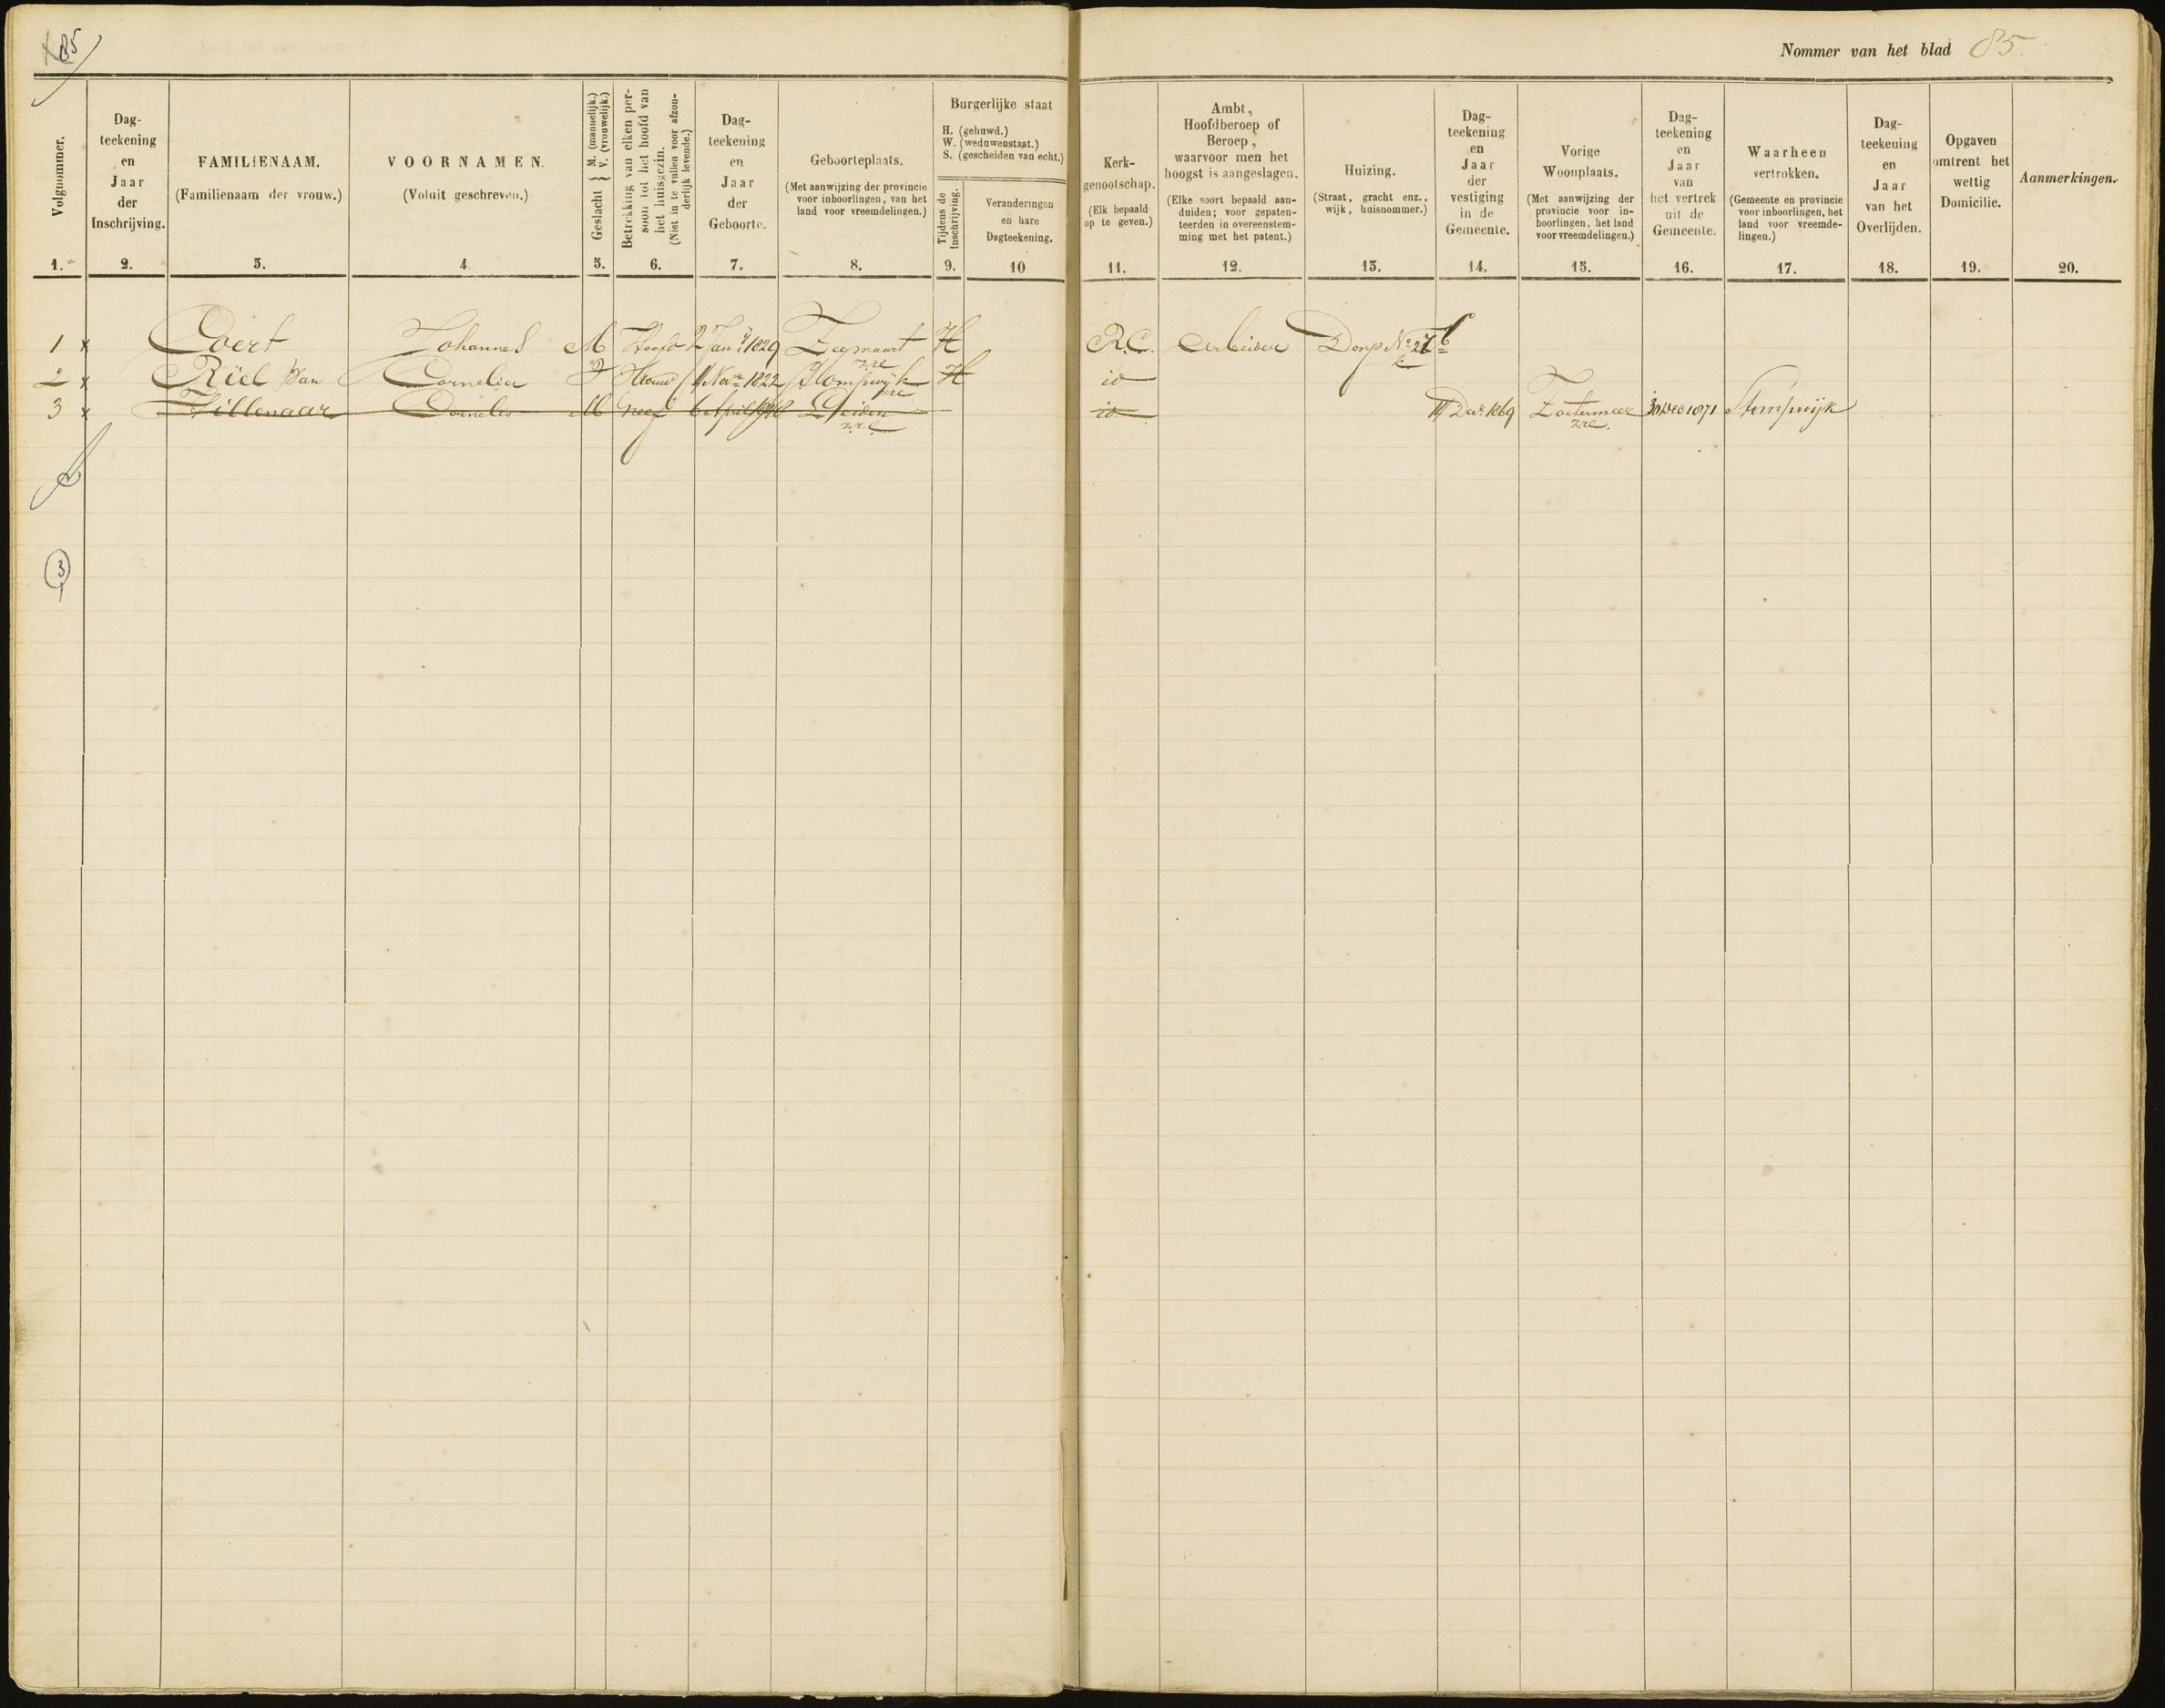 85
Nommer van het blad 85.
Volgnommer.
1.
Dag-
teekening
en
Jaar
der
Inschrijving.
2.
FAMILIENAAM.
(Familienaam der vrouw.)
3.
VOORNAMEN.
(Voluit geschreven.)
4.
Geslacht { M. (mannelijk.)
V. (vrouwelijk.)
5.
Betrekking van elken per-
soon tot het hoofd van
het huisgezin.
(Niet in te vullen voor afzon-
derlijk levende.)
6.
Dag-
teekening
en
Jaar
der
Geboorte.
7.
Geboorteplaats.
(Met aanwijzing der provincie
voor inboorlingen, van het
land voor vreemdelingen.)
8.
Burgerlijke staat
H. (gehuwd.)
W. (weduwenstaat.)
S. (gescheiden van echt.)
Tijdens de
Inschrijving.
9.
Veranderingen
en hare
Dagteekening.
10
Kerk-
genootschap.
(Elk bepaald
op te geven.)
11.
Ambt,
Hoofdberoep of
Beroep,
waarvoor men het
hoogst is aangeslagen.
(Elke soort bepaald aan-
duiden; voor gepaten-
teerden in overeenstem-
ming met het patent.)
12.
Huizing.
(Straat, gracht enz.,
wijk, huisnommer.)
13.
Dag-
teekening
en
Jaar
der
vestiging
in de
Gemeente.
14.
Vorige
Woonplaats.
(Met aanwijzing der
provincie voor in-
boorlingen, het land
voor vreemdelingen.)
15.
Dag-
teekening
en
Jaar
van
het vertrek
uit de
Gemeente.
16.
Waarheen
vertrokken.
(Gemeente en provincie
voor inboorlingen, het
land voor vreemde-
lingen.)
17.
Dag-
teekening
en
Jaar
van het
Overlijden.
18.
Opgaven
omtrent het
wettig
Domicilie.
19.
Aanmerkingen.
20.
1 x Coert Johannes M Hoofd 2 Jany 1829 Zegwaart H R.C. Arbeider Dorp No
z.h.
2 x Riel van Cornelia V Vrouw 11 Nov 1822 Stompwijk H id
z.h.
3 x Tillenaar Cornelis M Neef 6 April Leiden id 11 Decr 1869 Zoetermeer 30 Dec 1871 Stompwijk
z.h. z.h.
3